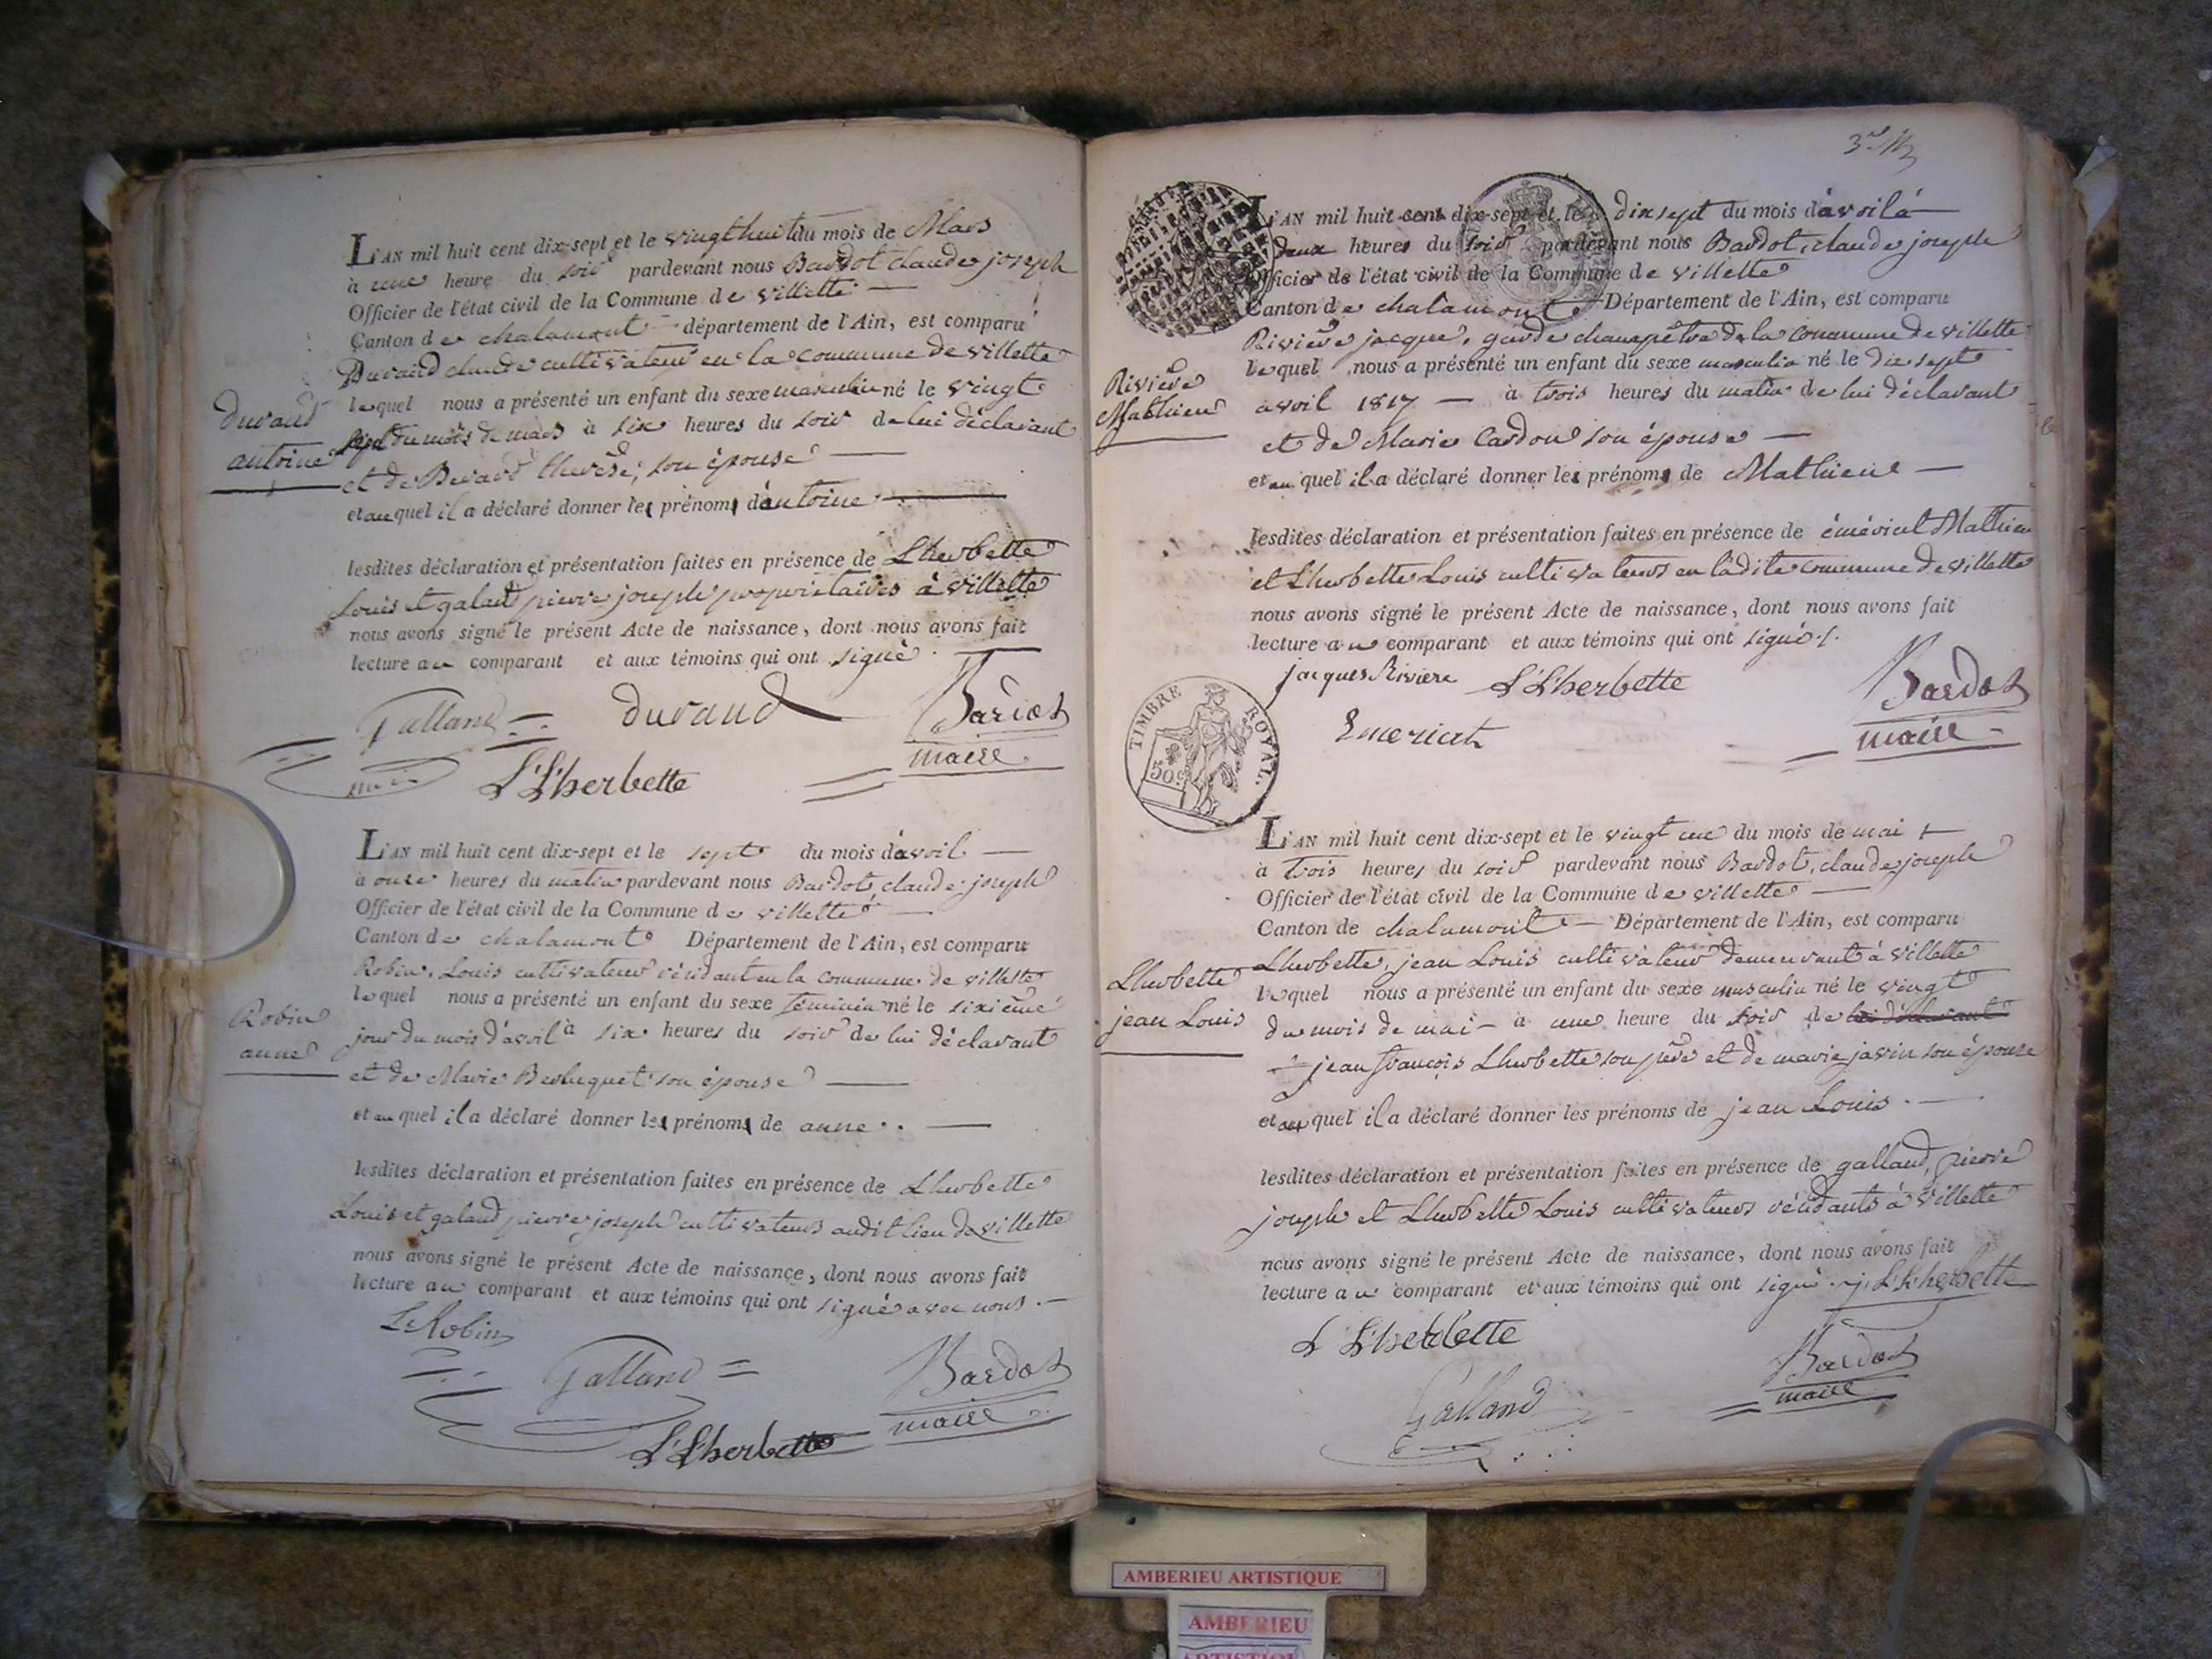 L'AN mil huit cent dix-sept et le vingt huit du mois de Mars
à une heure du soir pardevant nous Bardot claude joseph
Officier de l'état civil de la Commune de villette
Canton de chalamont département de l'Ain, est comparu
Durand claude cultivateur en la commune de villette
lequel nous a présenté un enfant du sexe masculin né le vingt
Durand
antoine
sept du mois de mars à six heures du soir de lui déclarant
et de Berard therèse, son épouse
et au quel il a déclaré donner les prénoms d'antoine
lesdites déclaration et présentation faites en présence de Lherbette
Louis et galand pierre joseph propriétaires à villette
nous avons signé le présent Acte de naissance, dont nous avons fait
lecture au comparant et aux témoins qui ont signé
Galland durand Bardot
maire
L Lherbette
L'AN mil huit cent dix-sept et le sept du mois d'avril
à onze heures du matin pardevant nous Bardot, claude joseph
Officier de l'état civil de la Commune de villette
Canton de chalamont Département de l'Ain, est comparu
Robin, Louis cultivateur résidant en la commune de villette
lequel nous a présenté un enfant du sexe féminin né le sixième
Robin
anne
jour du mois d'avril à six heures du soir de lui déclarant
et de Marie Berluquet son épouse
et au quel il a déclaré donner les prénoms de anne
lesdites déclaration et présentation faites en présence de Lherbette
Louis et galand pierre joseph cultivateurs audit lieu de villette
nous avons signé le présent Acte de naissance, dont nous avons fait
lecture au comparant et aux témoins qui ont signé avec nous
L Robin
Galland Bardot
maire
L Lherbette
L'AN mil huit cent dix-sept et le dix sept du mois d'avril à
deux heures du soir pardevant nous Bardot, claude joseph
Officier de l'état civil de la Commune de villette
Canton de chalamont Département de l'Ain, est comparu
Rivière jacque, garde champêtre de la commune de villette
lequel nous a présenté un enfant du sexe masculin né le dix sept
Rivière
Mathieu
avril 1817 à trois heures du matin de lui déclarant
et de Marie Cardon son épouse
et au quel il a déclaré donner les prénoms de Mathieu
lesdites déclaration et présentation faites en présence de émérict Mathieu
et Lherbette Louis cultivateurs en ladite commune de villette
nous avons signé le présent Acte de naissance, dont nous avons fait
lecture au comparant et aux témoins qui ont signé
jacques Riviere L Lherbette Bardot
maire
Emerict
TIMBRE ROYAL
50 c
L'AN mil huit cent dix-sept et le vingt une du mois de mai
à trois heures du soir pardevant nous Bardot, claude joseph
Officier de l'état civil de la Commune de villette
Canton de chalamont Département de l'Ain, est comparu
Lherbette, jean Louis cultivateur demeurant à villette
lequel nous a présenté un enfant du sexe masculin né le vingt
Lherbette
jean Louis
du mois de mai à une heure du soir de lui déclarant
jean françois Lherbette son père et de marie javin son épouse
et au quel il a déclaré donner les prénoms de jean Louis
lesdites déclaration et présentation faites en présence de galland, pierre
joseph et Lherbette Louis cultivateurs résidants à villette
nous avons signé le présent Acte de naissance, dont nous avons fait
lecture au comparant et aux témoins qui ont signé j. L Lherbette
L Lherbette
Bardot
maire
Galland
AMBERIEU ARTISTIQUE
AMBERIEU
ARTISTIQUE